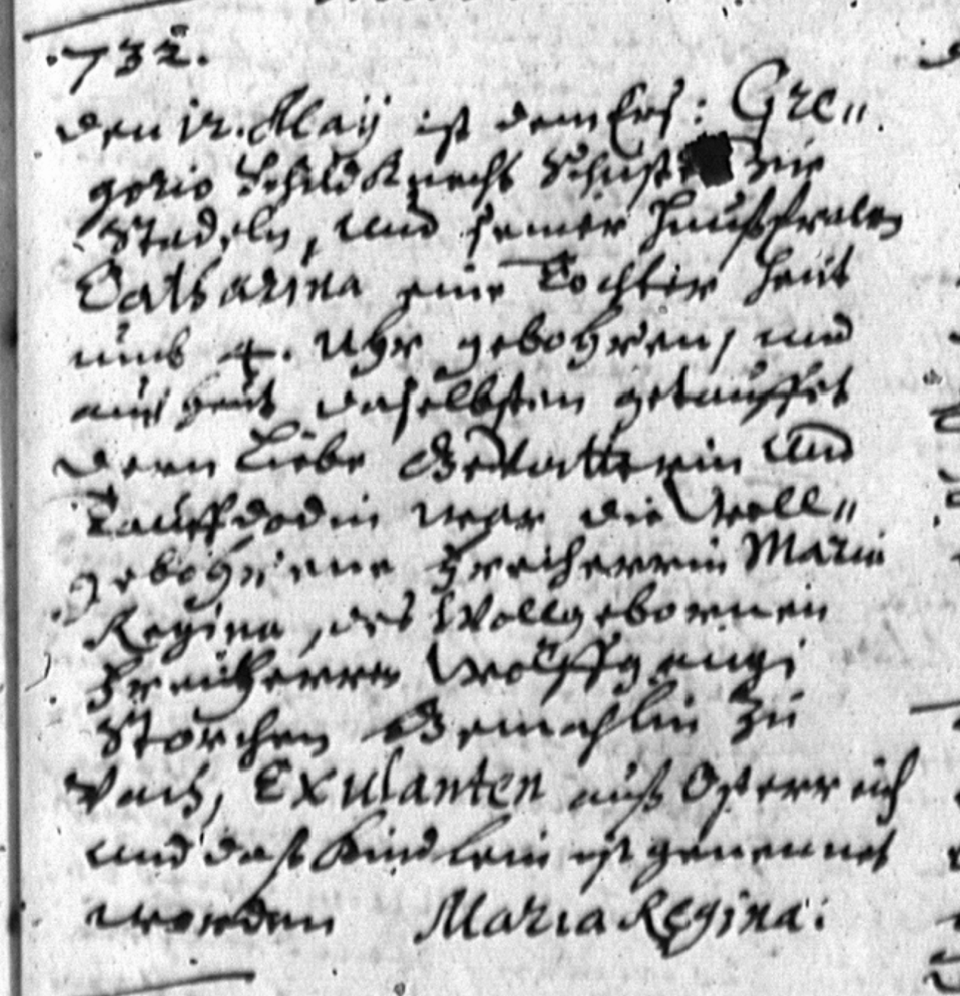 732.
Den 12. Maij ist dem Ers: Gre„
gorio Schildtknecht Schuster zue
Stadeln, und seiner Haußfrawen
Catharina eine Tochter heut
umb 4. Uhr gebohren, und
auch heut daselbsten getauffet
deren Liebe Gevatterin und
Tauffdodin war die Woll„
gebohrene Freiherrin Maria
Regina, des Wollgebornen
Freiherrn Wolffgangi
Storchen Gemahlin zu
Vach, Exulanten auß Osterreich
und daß Kindlein ist genennet
worden Maria Regina.